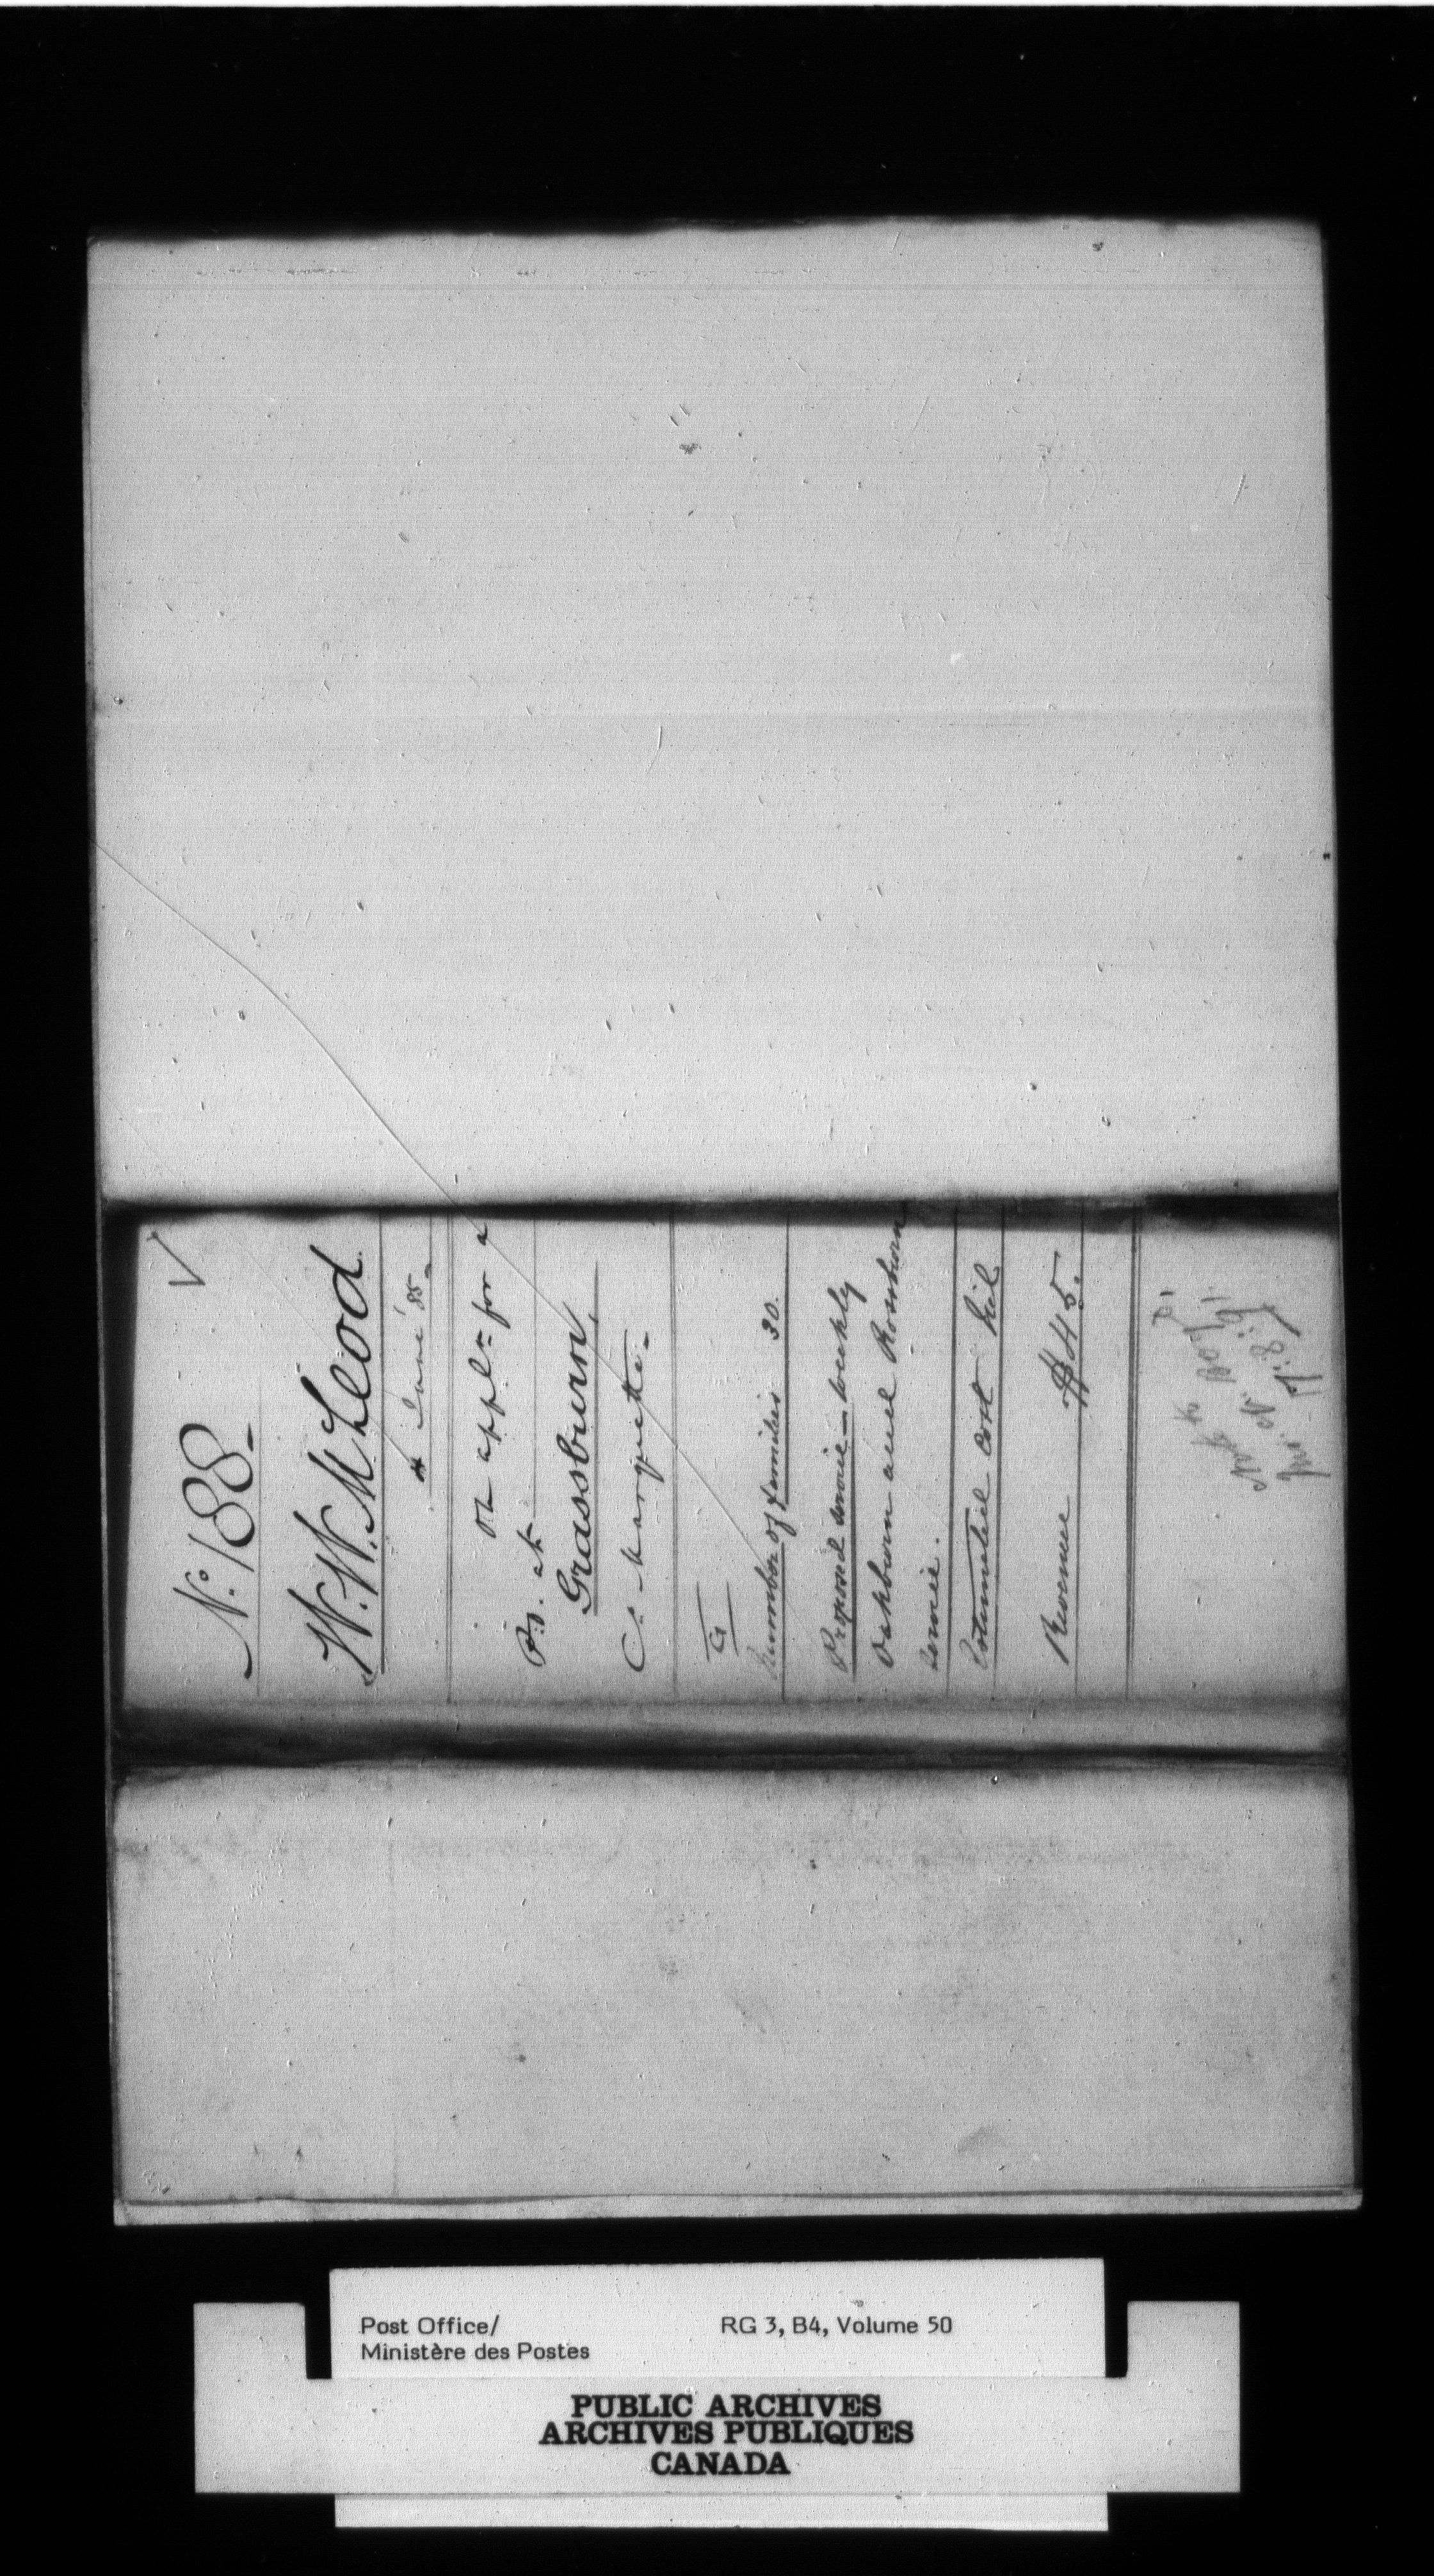 No. 188 -
W. W. McLeod
4 June '85 -
on appln for a
P.O. at
Grassburn,
Co. Marquette -
Number of families 30.
Proposed service - weekly
Oakburn and Rossburn
service.
Estimated cost Nil
Revenue $45.
Post Office/
Ministère des Postes
RG 3, B4, Volume 50
PUBLIC ARCHIVES
ARCHIVES PUBLIQUES
CANADA